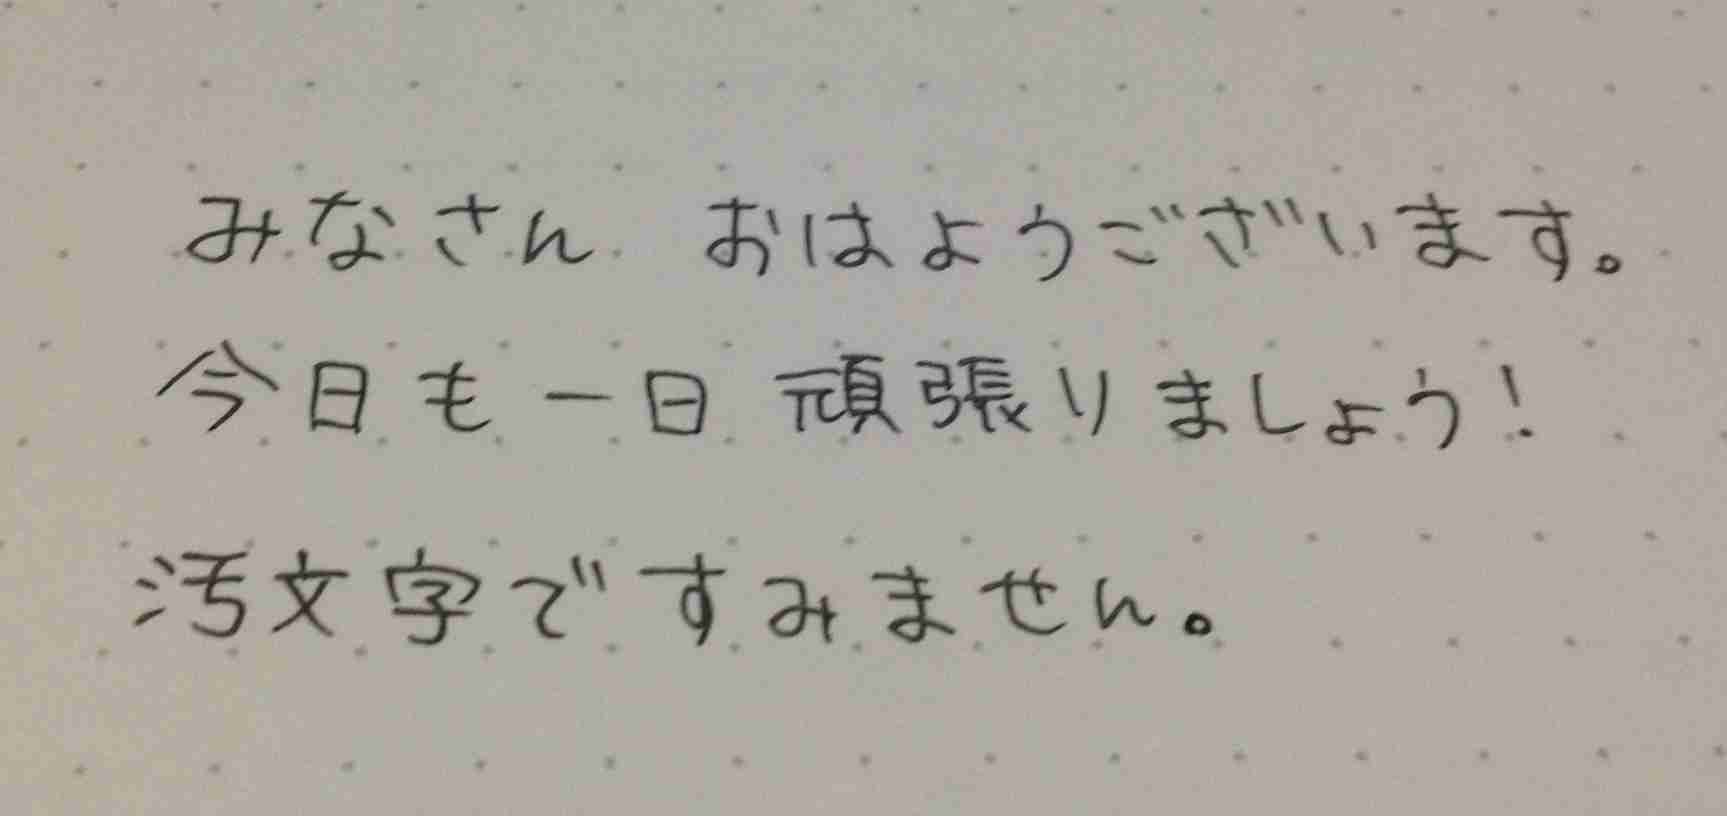 みなさん おはようございます。
今日も一日頑張りましょう!
汚文字ですみません。